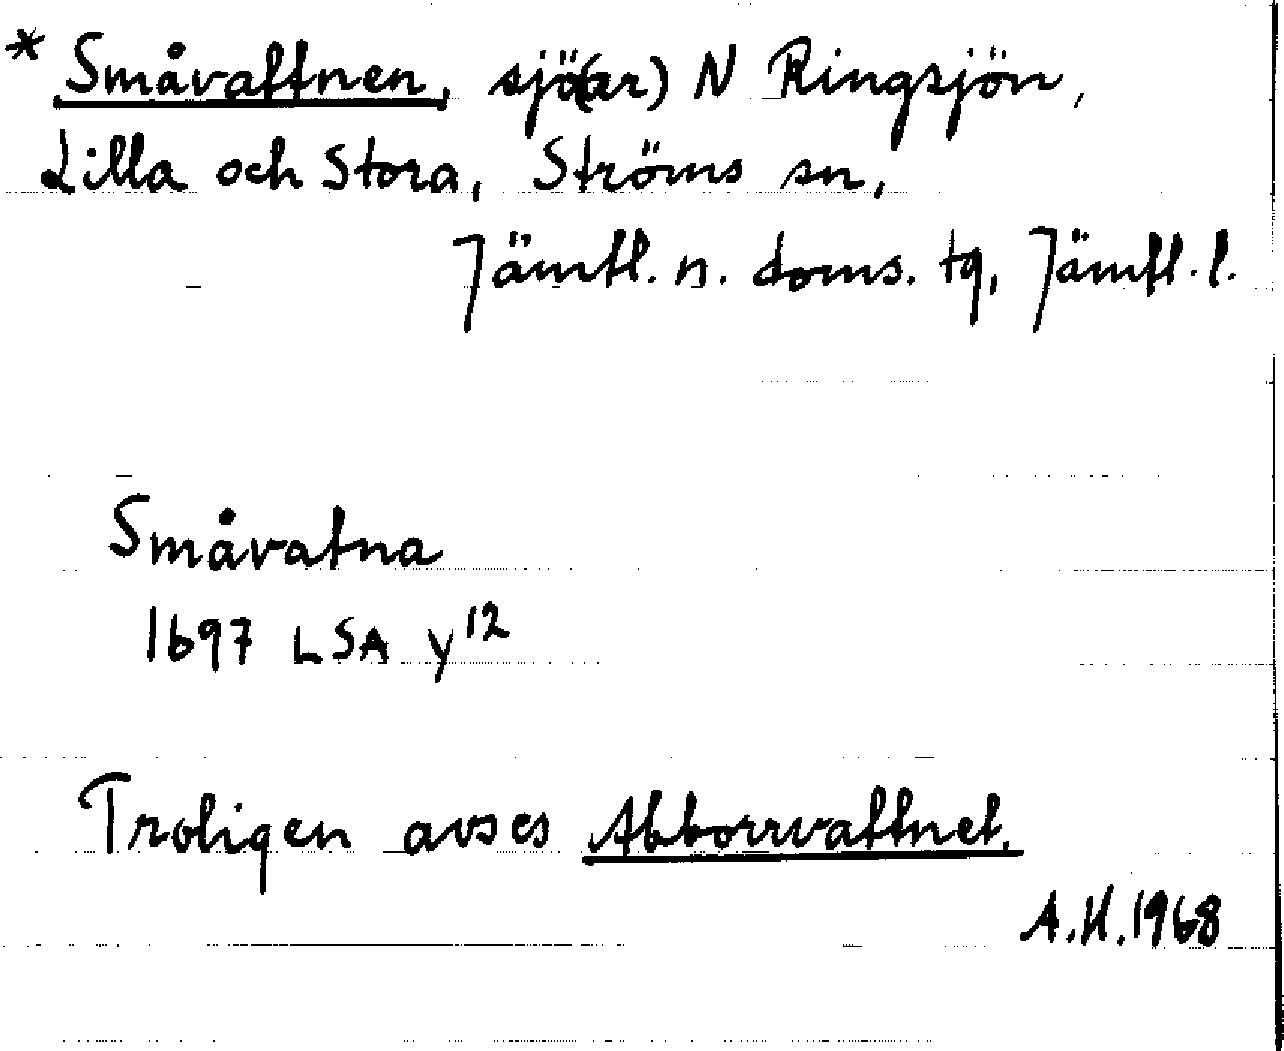 * Småvattnen, sjö(ar) N Ringsjön,
Lilla och Stora, Ströms sn,
Jämtl. n. doms. tg, Jämtl. l.
Småvatna
1697 LSA y12
Troligen avses Abborrvattnet.
A.H. 1968